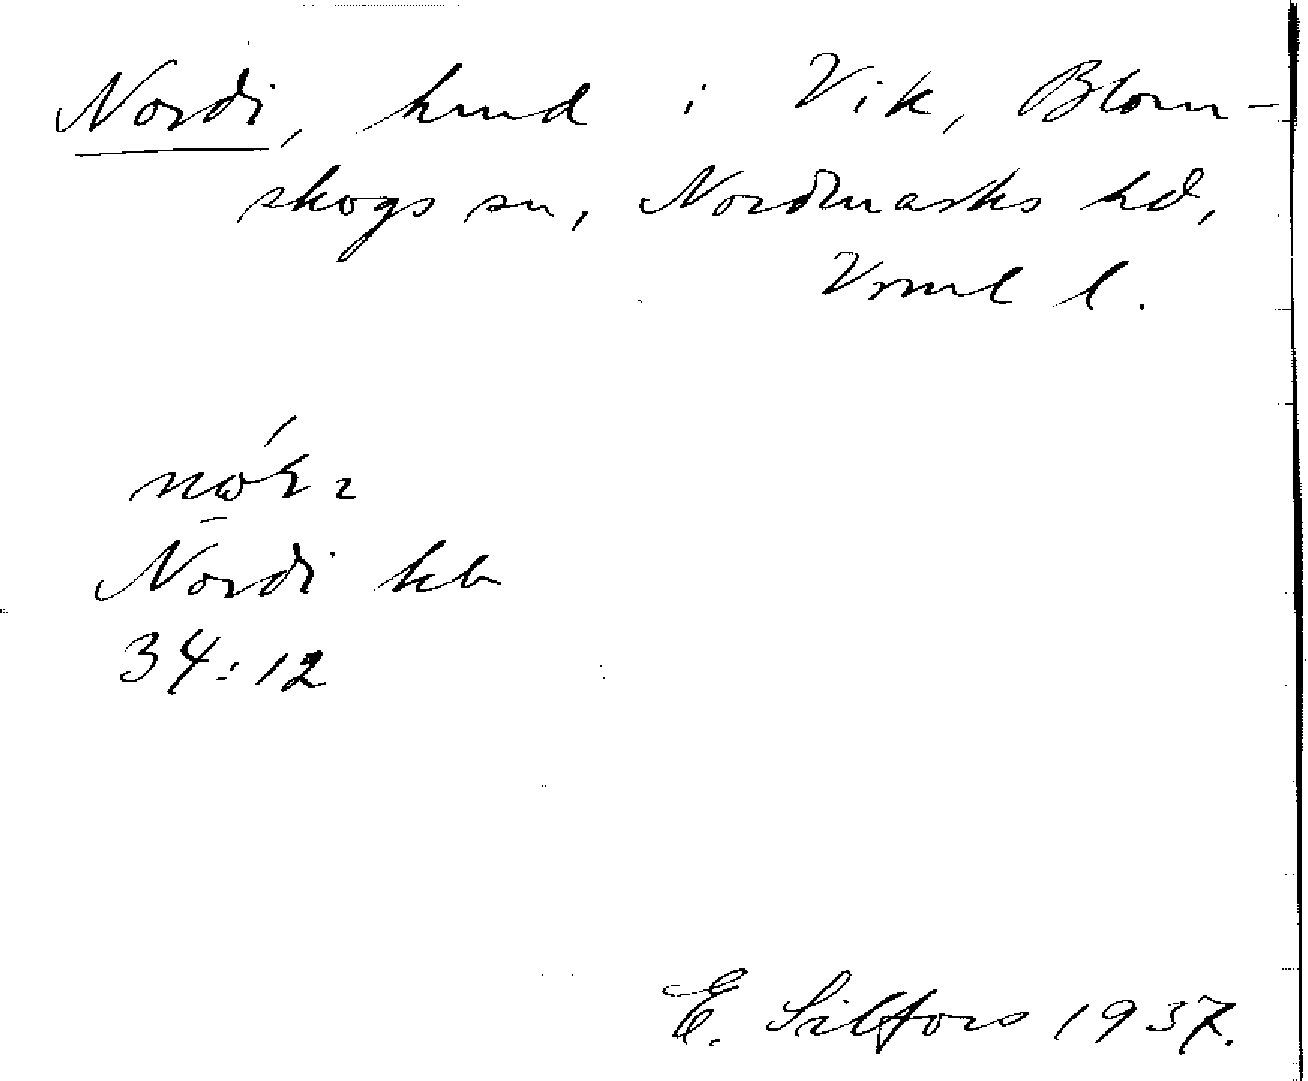 Nordi, hmd i Vik, Blom-
skogs sn, Nordmarks hd,
Vrml l.
Nordi kb
34:12
E. Silfors 1937.